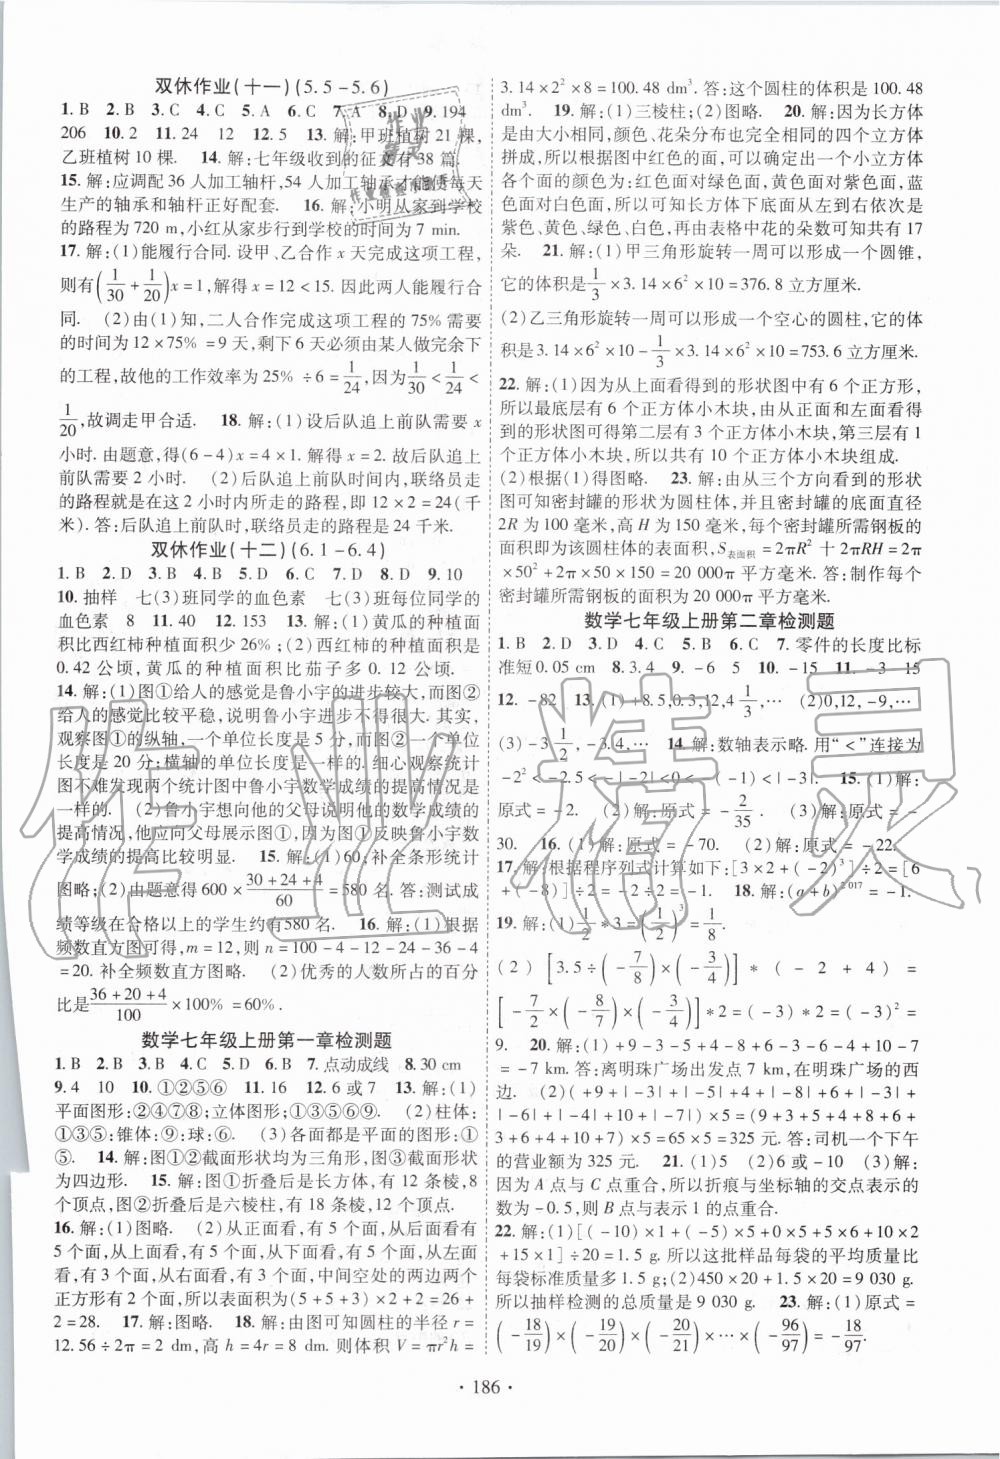 双休作业(十一)(5.5－5.6)
1. B　2. B　3. C　4. C　5. A　6. C　7. A　8. D　9. 194
206　10. 2　11. 24　12　12. 5　13. 解:甲班植树 21 棵,
乙班植树 10 棵.　14. 解:七年级收到的征文有 38 篇.
15. 解:应调配 36 人加工轴杆,54 人加工轴承才能使每天
生产的轴承和轴杆正好配套.　16. 解:小明从家到学校
的路程为 720 m,小红从家步行到学校的时间为 7 min.
17. 解:(1)能履行合同. 设甲、乙合作 x 天完成这项工程,
则有(1/30＋1/20)x＝1,解得 x＝12＜15. 因此两人能履行合
同.　(2)由(1)知,二人合作完成这项工程的 75% 需要
的时间为 12×75%＝9 天,剩下 6 天必须由某人做完余下
的工程,故他的工作效率为 25%÷6＝1/24,因为1/30＜1/24＜
1/20,故调走甲合适.　18. 解:(1)设后队追上前队需要 x
小时. 由题意,得(6－4)x＝4×1. 解得 x＝2. 所以后队追上
前队需要 2 小时.　(2)后队追上前队时间内,联络员走
的路程就是在这 2 小时内所走的路程,即 12×2＝24(千
米). 答:后队追上前队时,联络员走的路程是 24 千米.
双休作业(十二)(6.1－6.4)
1. B　2. D　3. B　4. B　5. D　6. D　7. D　8. D　9. 10
10. 抽样　七(3)班同学的血色素　七(3)班每位同学的
血色素　8　11. 40　12. 153　13. 解:(1)黄瓜的种植面
积比西红柿种植面积少 26%;(2)西红柿的种植面积是
0.42 公顷,黄瓜的种植面积比茄子多 0.12 公顷.
14. 解:(1)图①给人的感觉是鲁小宇的进步较大,而图②
给人的感觉比较平稳,说明鲁小宇进步不得很大. 其实,
观察图①的纵轴,一个单位长度是 5 分,而图②一个单位
长度是 20 分;横轴的单位长度是一样的. 细心观察统计
图不难发现两个统计图中鲁小宇数学成绩的提高情况是
一样的.　(2)鲁小宇想向他的父母说明他的数学成绩的
提高情况,他应向父母展示图①,因为图①反映鲁小宇数
学成绩的提高比较明显.　15. 解:(1)60;补全条形统计
图略;(2)由题意得 600×(30＋24＋4)/60＝580 名. 答:测试成
绩等级在合格以上的学生约有580 名.　16. 解:(1)根据
频数直方图可得,m＝12,则 n＝100－4－12－24－36－4
＝20. 补全频数直方图略.　(2)优秀的人数所占的百分
比是(36＋20＋4)/100×100%＝60%.
数学七年级上册第一章检测题
1. B　2. B　3. B　4. C　5. D　6. B　7. 点动成线　8. 30 cm
9. 4　10　10. ①②⑤⑥　11. 12　12. 6 或 7　13. 解:(1)
平面图形:②④⑦⑧;立体图形:①③⑤⑥⑨.　(2)柱体:
①③⑤;锥体:⑨;球:⑥.　(3)各面都是平面的图形:①
⑤.　14. 解:图①②截面形状均为三角形,图③截面形状
为四边形.　15. 解:图①折叠后是长方体,有 12 条棱,8
个顶点,图②折叠后是六棱柱,有 18 条棱,12 个顶点.
16. 解:(1)图略.　(2)从正面看,有 5 个面,从后面看有
5 个面,从上面看,有 5 个面,从下面看,有 5 个面,从左面
看,有 3 个面,从右面看,有 3 个面,中间空处的两边两个
正方形有 2 个面,所以表面积为(5＋5＋3)×2＋2＝26＋
2＝28.　17. 解:图略.　18. 解:由图可知圆柱的半径 r＝
12.56÷2π＝2 dm,高 h＝4r＝8 dm. 则体积 V＝πr²h＝
3.14×2²×8＝100.48 dm³. 答:这个圆柱的体积是 100.48
dm³.　19. 解:(1)三棱柱;(2)图略.　20. 解:因为长方体
是由大小相同,颜色、花朵分布也完全相同的四个立方体
拼成,所以根据图中红色的面,可以确定出一个小立方体
各个面的颜色为:红色面对绿色面,黄色面对紫色面,蓝
色面对白色面,所以可知长方体下底面从左到右依次是
紫色、黄色、绿色、白色,再由表格中花的朵数可知共有 17
朵.　21. 解:(1)甲三角形旋转一周可以形成一个圆锥,
它的体积是1/3×3.14×6²×10＝376.8 立方厘米.
(2)乙三角形旋转一周可以形成一个空心的圆柱,它的体
积是3.14×6²×10－1/3×3.14×6²×10＝753.6 立方厘米.
22. 解:(1)因为从上面看得到的形状图中有 6 个正方形,
所以最底层有 6 个正方体小木块,由从正面和左面看得
到的形状图可得第二层有 3 个正方体小木块,第三层有 1
个正方体小木块,故共有 10 个正方体小木块组成.
(2)根据(1)得图略.　23. 解:由从三个方向看到的形状
图可知密封罐的形状为圆柱体,并且密封罐的底面直径
2R 为 100 毫米,高 H 为 150 毫米,每个密封罐所需钢板的
面积即为该圆柱体的表面积,S表面积＝2πR²＋2πRH＝2π
×50²＋2π×50×150＝20 000π 平方毫米. 答:制作每个
密封罐所需钢板的面积为 20 000π 平方毫米.
数学七年级上册第二章检测题
1. B　2. D　3. D　4. B　5. B　6. C　7. 零件的长度比标
准短 0.05 cm　8. 3.4　9. －6　5　10. －15　11. －3　－15
12. －82　13. (1)＋8.5,0.3,12,4 1/3,…　(2)0,12,－9,…
(3)－3 1/2,－3.4,…　14. 解:数轴表示略. 用“＜”连接为
－2²＜－2.5＜－|－2|＜0＜－(－1)＜|－3|.　15. (1)解:
原式＝－2. (2)解:原式＝－2/35.　(3)解:原式＝－
30.　16. (1)解:原式＝－70.　(2)解:原式＝－22.
17. 解:根据程序列式计算如下:[3×2＋(－2)³]÷2＝[6
＋(－8)]÷2＝－2÷2＝－1.　18. 解:(a＋b)²⁰¹⁷＝－1.
19. 解:(1)1/2*3＝(1/2)³＝1/8.
(2)[3.5÷(－7/8)×(－3/4)]*(－2＋4)＝
[－7/2×(－8/7)×(－3/4)]*2＝(－3)*2＝(－3)²＝
9.　20. 解:(1)＋9－3－5＋4－8＋6－3－6－4＋10－7＝
－7 km. 答:离明珠广场出发点 7 km,在明珠广场的西
边.　(2)(|＋9|＋|－3|＋|－5|＋|＋4|＋|－8|＋|＋6|＋|－3|＋
|－6|＋|－4|＋|＋10|＋|－7|)×5＝(9＋3＋5＋4＋8＋6＋
3＋6＋4＋10＋7)×5＝65×5＝325 元. 答:司机一个下午
的营业额为 325 元.　21. (1)5　(2)6或－10　(3)解:
因为 A 点与 C 点重合,所以折痕与坐标轴的交点表示的
数为－0.5,则 B 点与表示 1 的点重合.
22. 解:(1)[(－10)×1＋(－5)×5＋0×5＋5×6＋10×2
＋15×1]÷20＝1.5 g. 所以这批样品每袋的平均质量比
每袋标准质量多 1.5 g;(2)450×20＋1.5×20＝9 030 g.
所以抽样检测的总质量是 9 030 g.　23. 解:(1)原式＝
(－18/19)×(－19/20)×(－20/21)×…×(－96/97)＝－18/97.
· 186 ·
作业精灵